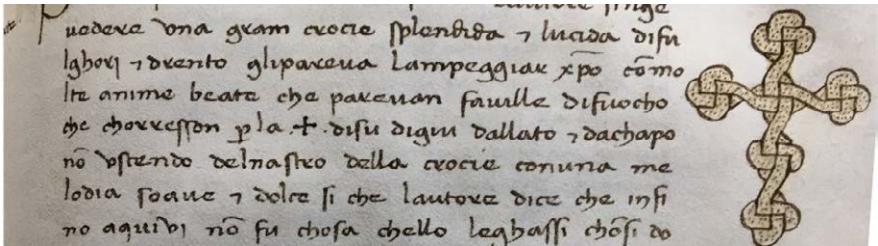 lautore finge
uedere una gram crocie splendida ⁊ lucida difu
lghorj ⁊ drento glipareua lampeggiar xp̄o cō mo
lte anime beate che pareuan fauille difuocho
che chorresson ꝑ la ✝ disu digiu dallato ⁊ dachapo
nō vscendo delnastro della crocie conuna me
lodia soaue ⁊ dolce si che lautore dice che infi
no aquiui nō fu chosa chello leghassi chōsi do